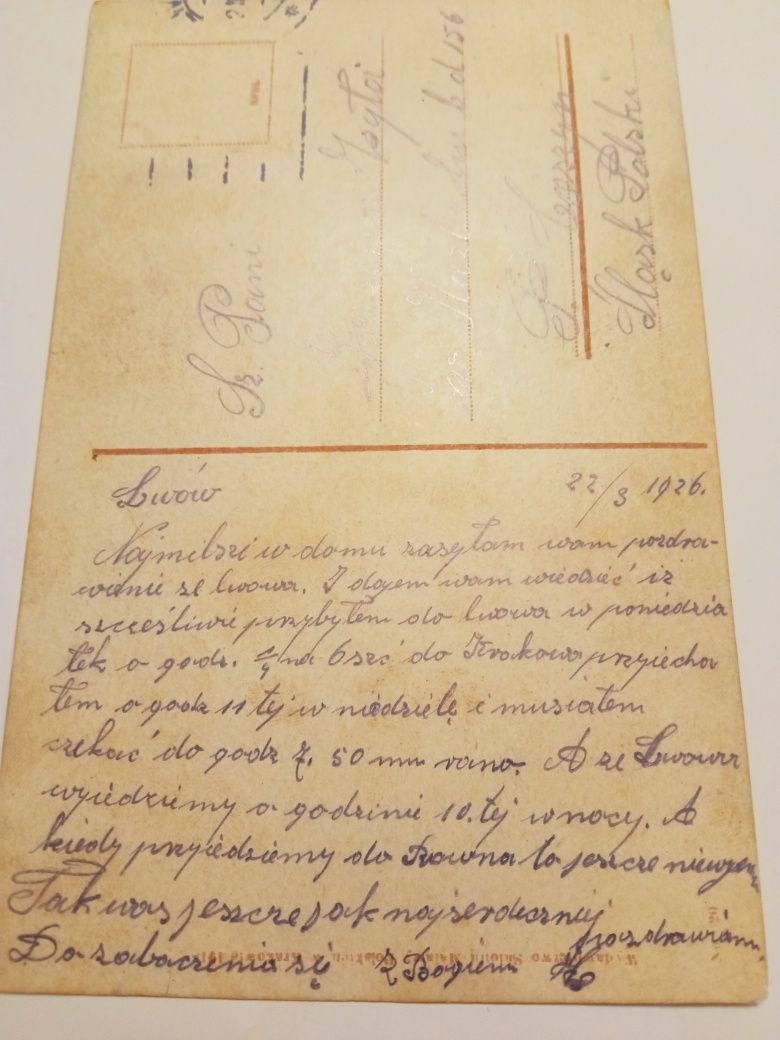 Sz. Pani
Cieszyn
Śląsk Polski
Lwów 22/3 1926.
Najmilsi w domu zasyłam wam pozdra-
wienie ze lwowa. I dajem wam wiedzieć iż
szczęśliwie przybyłem do lwowa w poniedzia
łek o godz. na 6 szć do Krakowa przyjecha
łem o godz 11 tej w niedzielę i musiałem
czekać do godz 7. 50 min rano. A ze Lwowa
wyjedziemy o godzinie 10. tej w nocy. A
kiedy przyjedziemy do Rowna to jeszcze niewiem
Tak was jeszcze jak najserdeczniej
pozdrawiam.
Do zobaczenia się z Bogiem